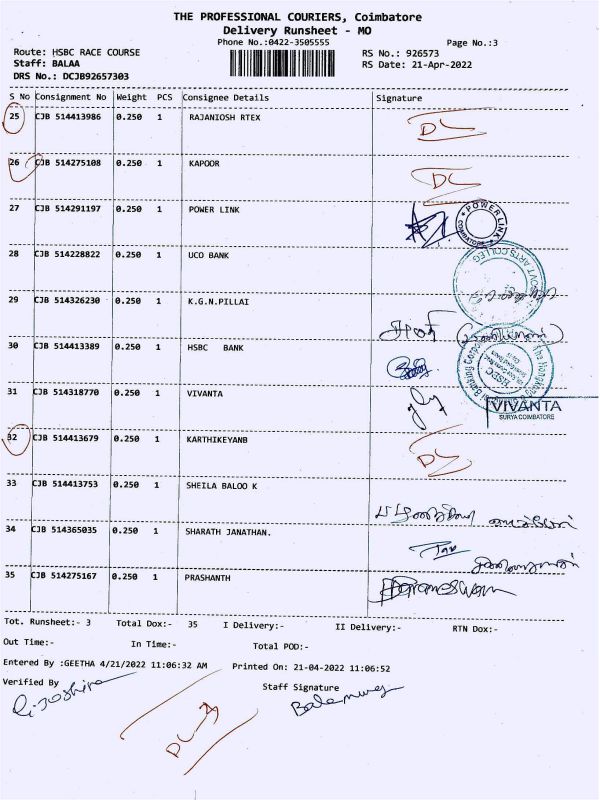 THE PROFESSIONAL COURIERS, Coimbatore
Delivery Runsheet - MO
Phone No.:0422-3505555
Page No.:3
Route: HSBC RACE COURSE
RS No.: 926573
Staff: BALAA
RS Date: 21-Apr-2022
DRS No.: DCJB92657303
S No Consignment No Weight PCS Consignee Details Signature
25 CJB 514413986 0.250 1 RAJANIOSH RTEX DL
26 CJB 514275108 0.250 1 KAPOOR DL
27 CJB 514291197 0.250 1 POWER LINK
POWER LINK COIMBATORE
28 CJB 514228822 0.250 1 UCO BANK
GOVT ARTS COLLEG
29 CJB 514326230 0.250 1 K.G.N.PILLAI
30 CJB 514413389 0.250 1 HSBC BANK
HSBC
31 CJB 514318770 0.250 1 VIVANTA
VIVANTA
SURYA COIMBATORE
32 CJB 514413679 0.250 1 KARTHIKEYANB DL
33 CJB 514413753 0.250 1 SHEILA BALOO K
34 CJB 514365035 0.250 1 SHARATH JANATHAN.
35 CJB 514275167 0.250 1 PRASHANTH
Tot. Runsheet:- 3 Total Dox:- 35 I Delivery:- II Delivery:- RTN Dox:-
Out Time:- In Time:- Total POD:-
Entered By :GEETHA 4/21/2022 11:06:32 AM Printed On: 21-04-2022 11:06:52
Verified By Staff Signature
DL